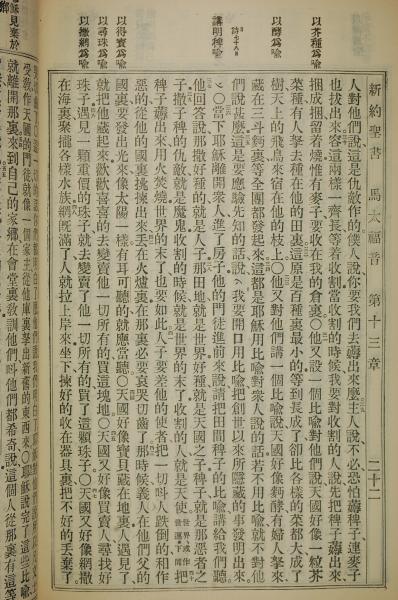 新約聖書 馬太福音 第十三章 二十二
以芥種爲喻
以酵爲喻
講明稗喻
以得寶爲喻
以尋珠爲喻
以撒網爲喻
穌見棄於
人對他們說這是仇敵作的僕人說你要我們去薅出來麼主人說不必恐怕薅稗子連麥子
也拔出來容這兩樣一齊長等着收割當收割的時候我要對收割的人說先把稗子薅出來
捆成捆留着燒惟有麥子要收在我的倉裏〇他又設一個比喻對他們說天國好像一粒芥
菜種有人拏去種在他的田裏這原是百種裏最小的等到長成了卻比各樣的菜都大成了
樹天上的飛鳥來宿在他的枝上〇他又對他們講一個比喻說天國好像麪酵有婦人拏來
藏在三斗麪裏等全團都發起來這都是耶穌用比喻對衆人說的話若不用比喻就不對他
們說甚麼這是要應驗先知的話說我要開口用比喻把創世以來所隱藏的事發明出來
〇當下耶穌離開衆人進了房子他的門徒進前來說請把田間稗子的比喻講給我們聽
他回答說那撒好種的就是人子那田地就是世界好種就是天國之子稗子就是那惡者之
子撒子稗的仇敵就是魔鬼收割的時候就是世界的末了收割的人就是天使把
稗子薅出來用火焚燒世界的末了也要如此人子要差他的使者把一切叫人跌倒的和作
惡的從他的國裏挑揀出來丟在火爐裏在那裏必要哀哭切齒了那時候義人在他們父的
國裏要發出光來像太陽一樣有耳可聽的就應當聽〇天國好像寶貝藏在地裏人遇見了
就把他藏起來歡歡喜喜的去變賣他一切所有的買這塊地〇天國又好像買賣人尋找好
珠子遇見一顆重價的珠子就去變賣了他一切所有的買了這顆珠子〇天國又好像網撒
在海裏聚攏各樣水族網既滿了人就拉上岸來坐下揀好的收在器具裏把不好的丟棄了
受敎作天國的門徒就像一個家主從他庫裏拏出新舊的東西來〇耶穌說完了這些比喻
就離開那裏來到自己的家鄉在會堂裏敎訓他們叫他們都希奇說這個人從那裏有這等